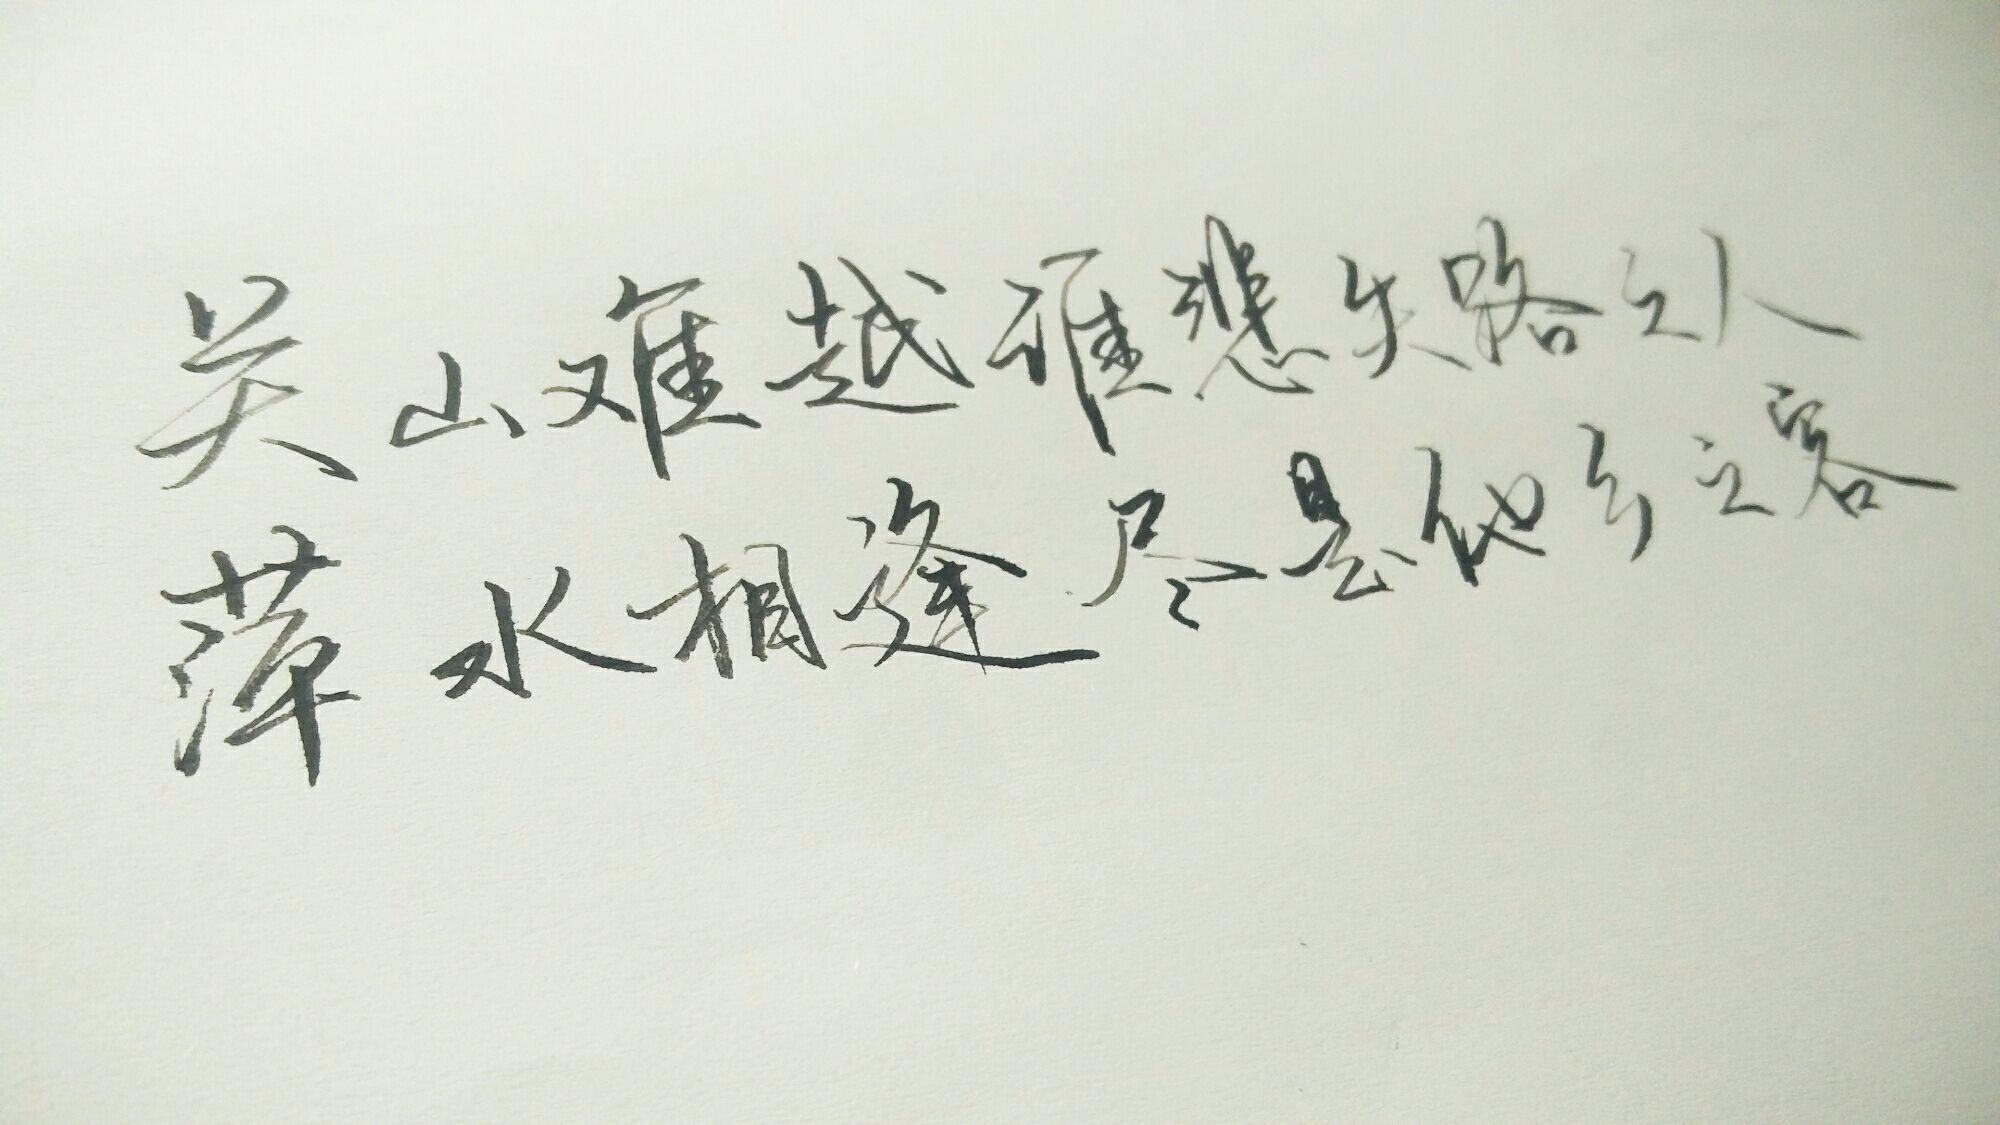 关山难越谁悲失路之人
萍水相逢尽是他乡之客